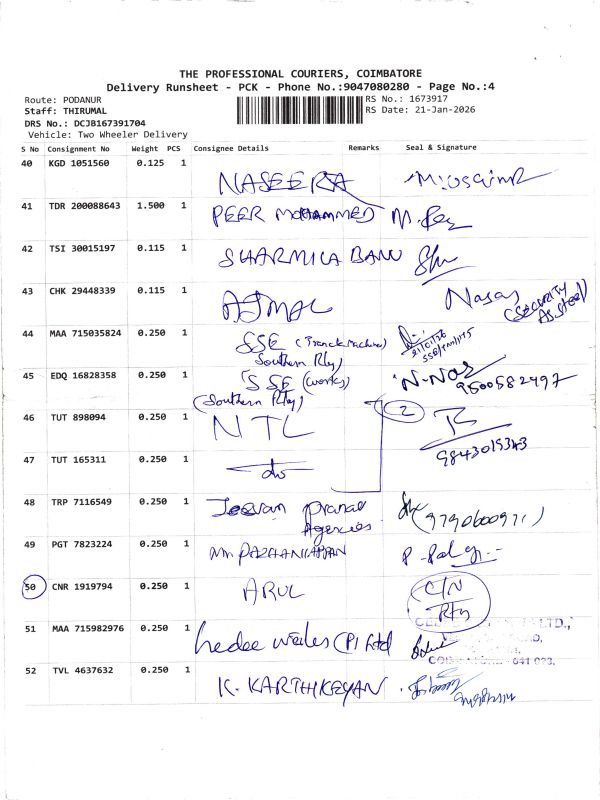 THE PROFESSIONAL COURIERS, COIMBATORE
Delivery Runsheet - PCK - Phone No.:9047080280 - Page No.:4
Route: PODANUR RS No.: 1673917
Staff: THIRUMAL RS Date: 21-Jan-2026
DRS No.: DCJB167391704
Vehicle: Two Wheeler Delivery
S No Consignment No Weight PCS Consignee Details Remarks Seal & Signature
40 KGD 1051560 0.125 1 NASEERA
41 TDR 200088643 1.500 1 PEER MOHAMMED
42 TSI 30015197 0.115 1 SHARMILA BANU
43 CHK 29448339 0.115 1 AJMAL (SECURITY
44 MAA 715035824 0.250 1 SSE (Track Machine)
Southern Rly)
45 EDQ 16828358 0.250 1 SSE (works) 9500582497
(Southern Rly)
46 TUT 898094 0.250 1 NTL 2
9843015343
47 TUT 165311 0.250 1 do
48 TRP 7116549 0.250 1 Agencies
49 PGT 7823224 0.250 1
50 CNR 1919794 0.250 1 ARUL C/N
Rtn
51 MAA 715982976 0.250 1 (P) Ltd LTD.,
52 TVL 4637632 0.250 1 K. KARTHIKEYAN